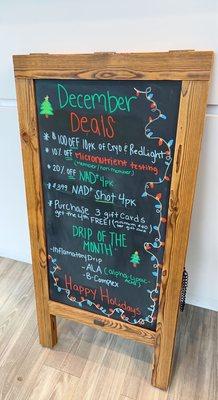 December
Deals
* $100 OFF 10pk of Cryo & RedLight
* 10% OFF Micronutrient testing
(member/non-member)
* 20% OFF NAD+ 4pk
* $399 NAD+ Shot 4pk
* Purchase 3 giftcards
get the 4th FREE!
DRIP OF THE
MONTH
-Inflammatory Drip
-ALA (alpha-lipoic-
acid)
-B-Complex
Happy Holidays